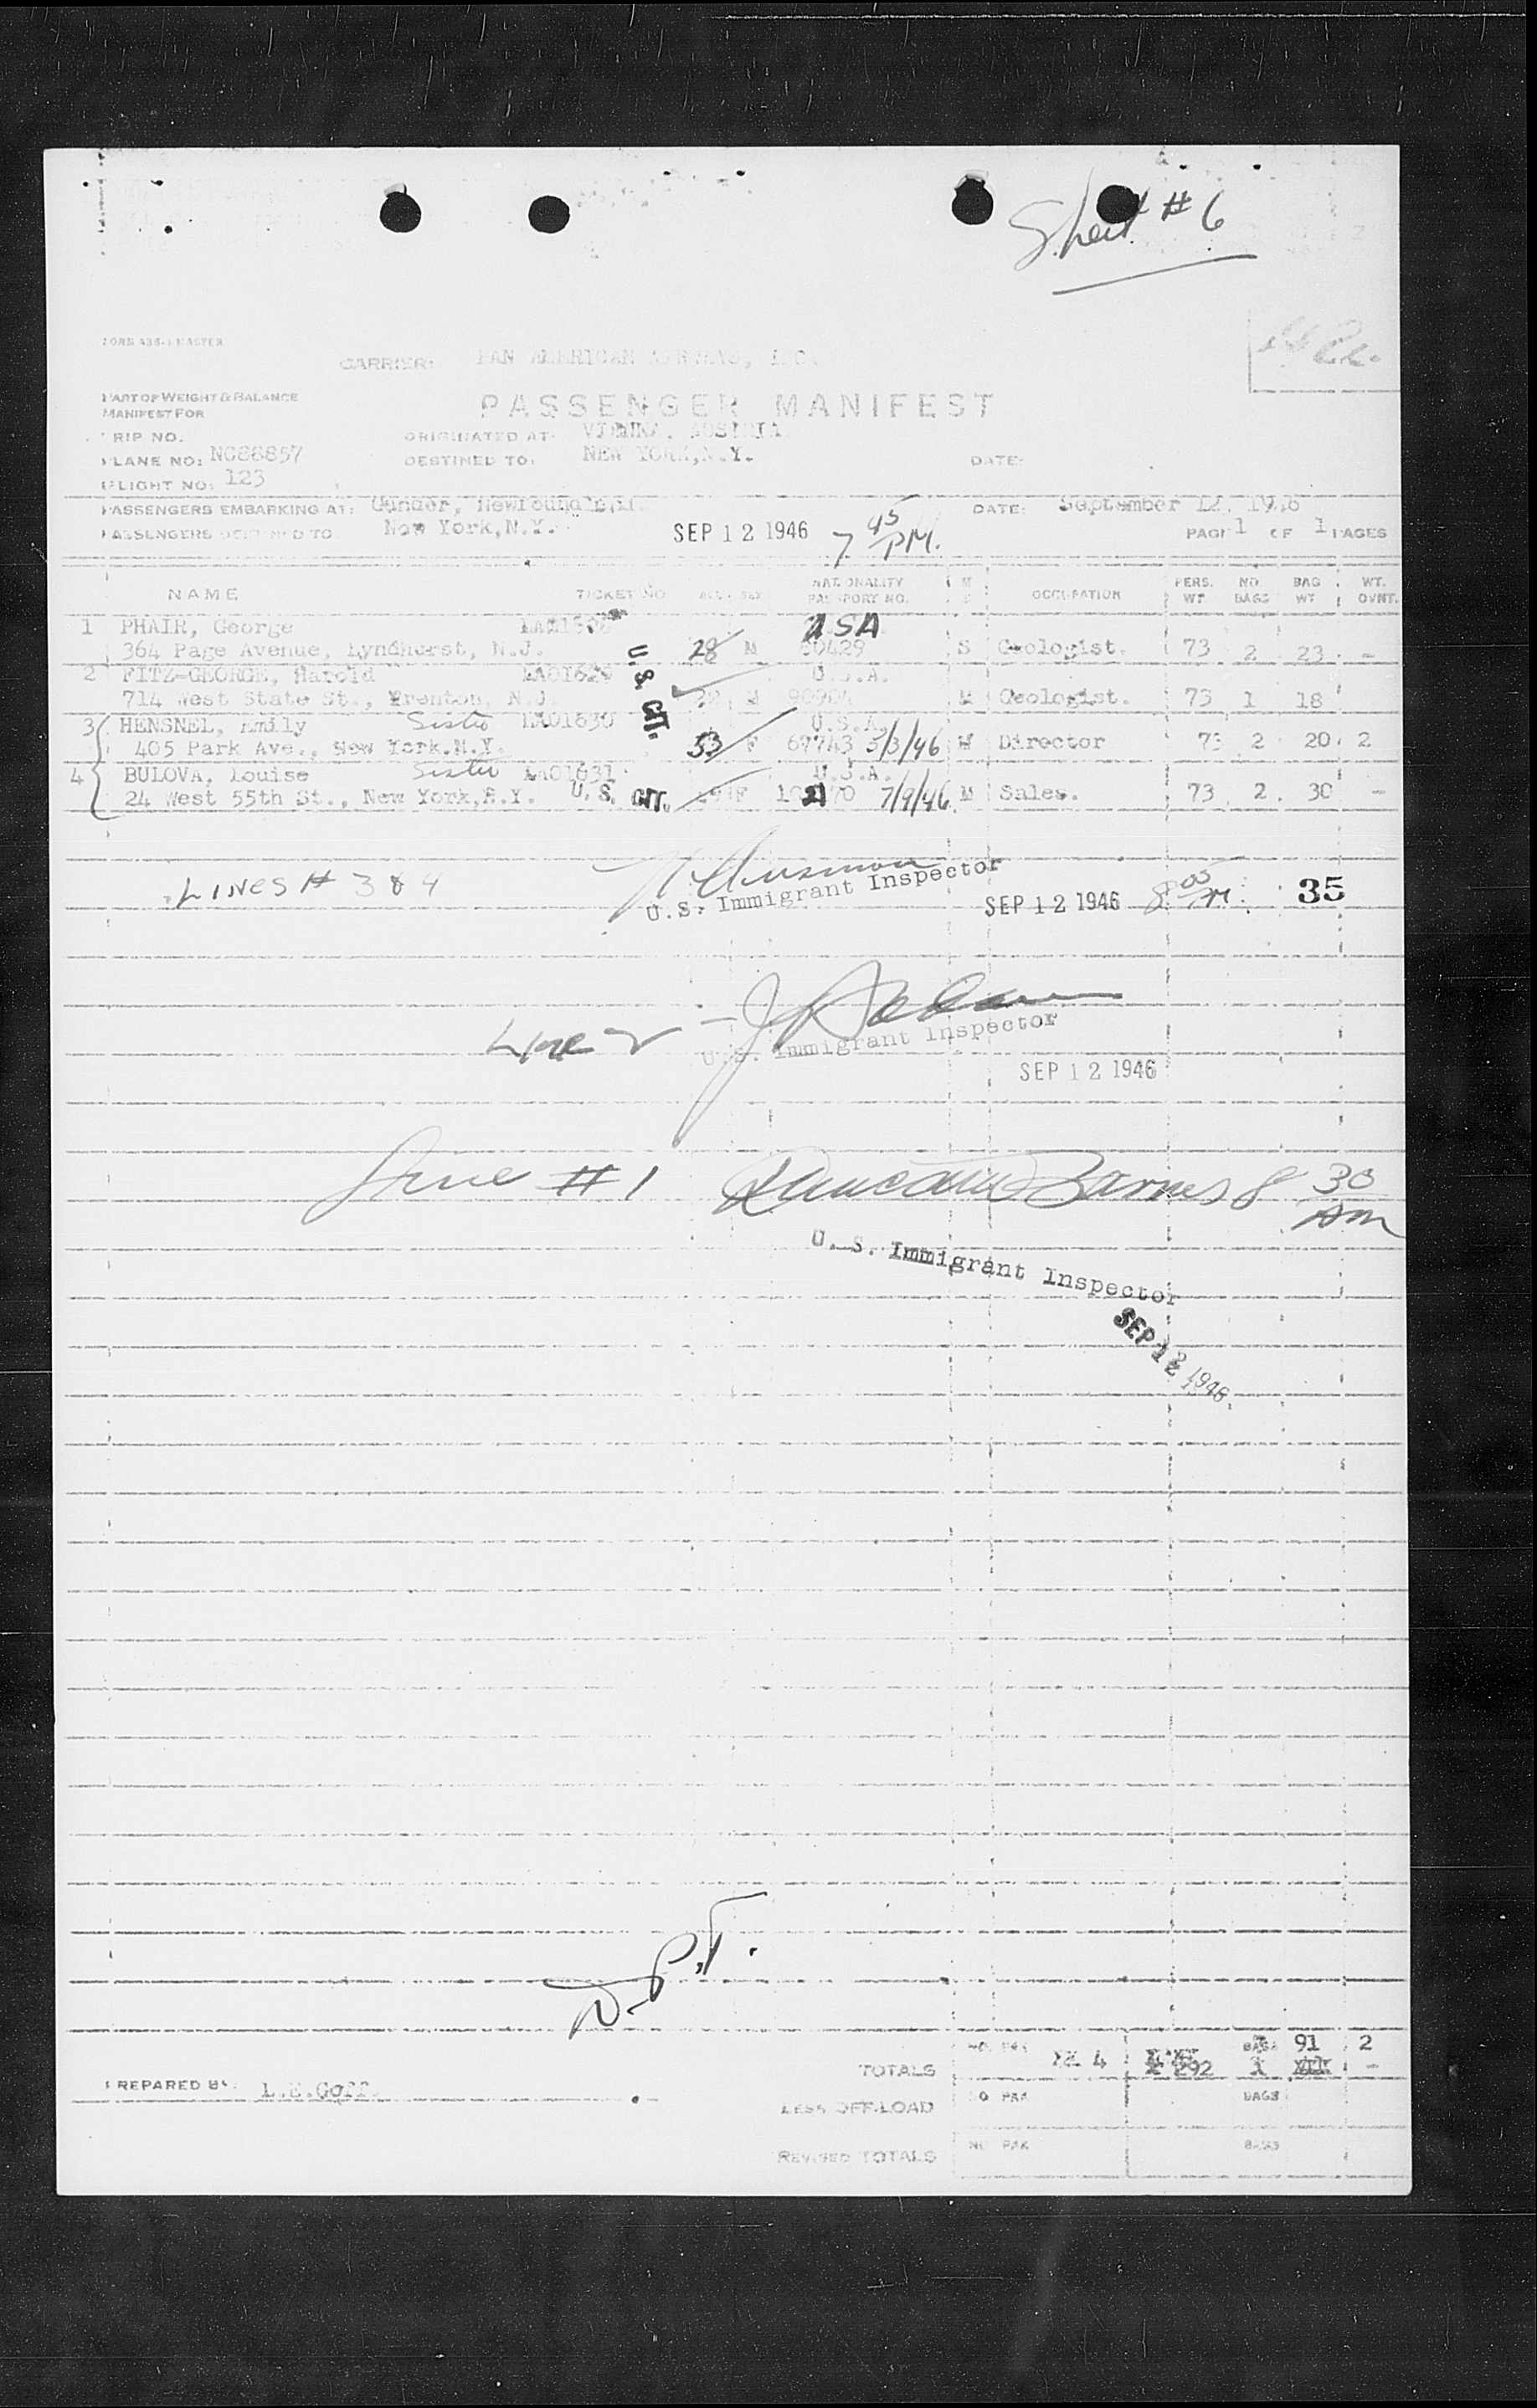 Sheet # 6
CARRIER: PAN AMERICAN AIRWAYS, INC.
PART OF WEIGHT & BALANCE
MANIFEST FOR
PASSENGER MANIFEST
TRIP NO.
ORIGINATED AT: VIENNA, AUSTRIA
PLANE NO: NC88857
DESTINED TO: NEW YORK, N.Y.
DATE:
FLIGHT NO: 123
PASSENGERS EMBARKING AT: Gander, Newfoundland
DATE: September 12, 1946
PASSENGERS DESTINED TO New York, N.Y.
SEP 12 1946 7 45 PM.
PAGE 1 OF 1 PAGES
NAME TICKET NO. AGE SEX NATIONALITY PASSPORT NO. M S OCCUPATION PERS. WT NO. BAGS BAG WT WT. OVNT.
1 PHAIR, George USA
364 Page Avenue, Lyndhurst, N.J. 28 M S Geologist. 73 2 23 -
2 FITZ-GEORGE, Harold LA01629 U.S.A.
714 West State St., Trenton, N.J. M M Geologist. 73 1 18
U.S. CIT.
3 HENSNEL, Emily Sister LA01630 U.S.A.
405 Park Ave., New York.N.Y. 53 F 67743 5/3/46 W Director 73 2 20 2
4 BULOVA, Louise Sister LA01631 U.S.A.
24 West 55th St., New York,N.Y. U.S. CIT. F 7/9/46 M Sales. 73 2 30 -
LINES # 3 & 4
U.S. Immigrant Inspector
SEP 12 1946 8 05 PM
35
Line 2 -
U.S. Immigrant Inspector
SEP 12 1946
Line #1 Duncan Barnes 8 30 AM
U. S. Immigrant Inspector
SEP 12 1946
TOTALS NO. PAX 4 292 BAGS 7 91 2
PREPARED BY: L.E.Goff
LESS OFF-LOAD NO PAX BAGS
REVISED TOTALS NO PAX BAGS